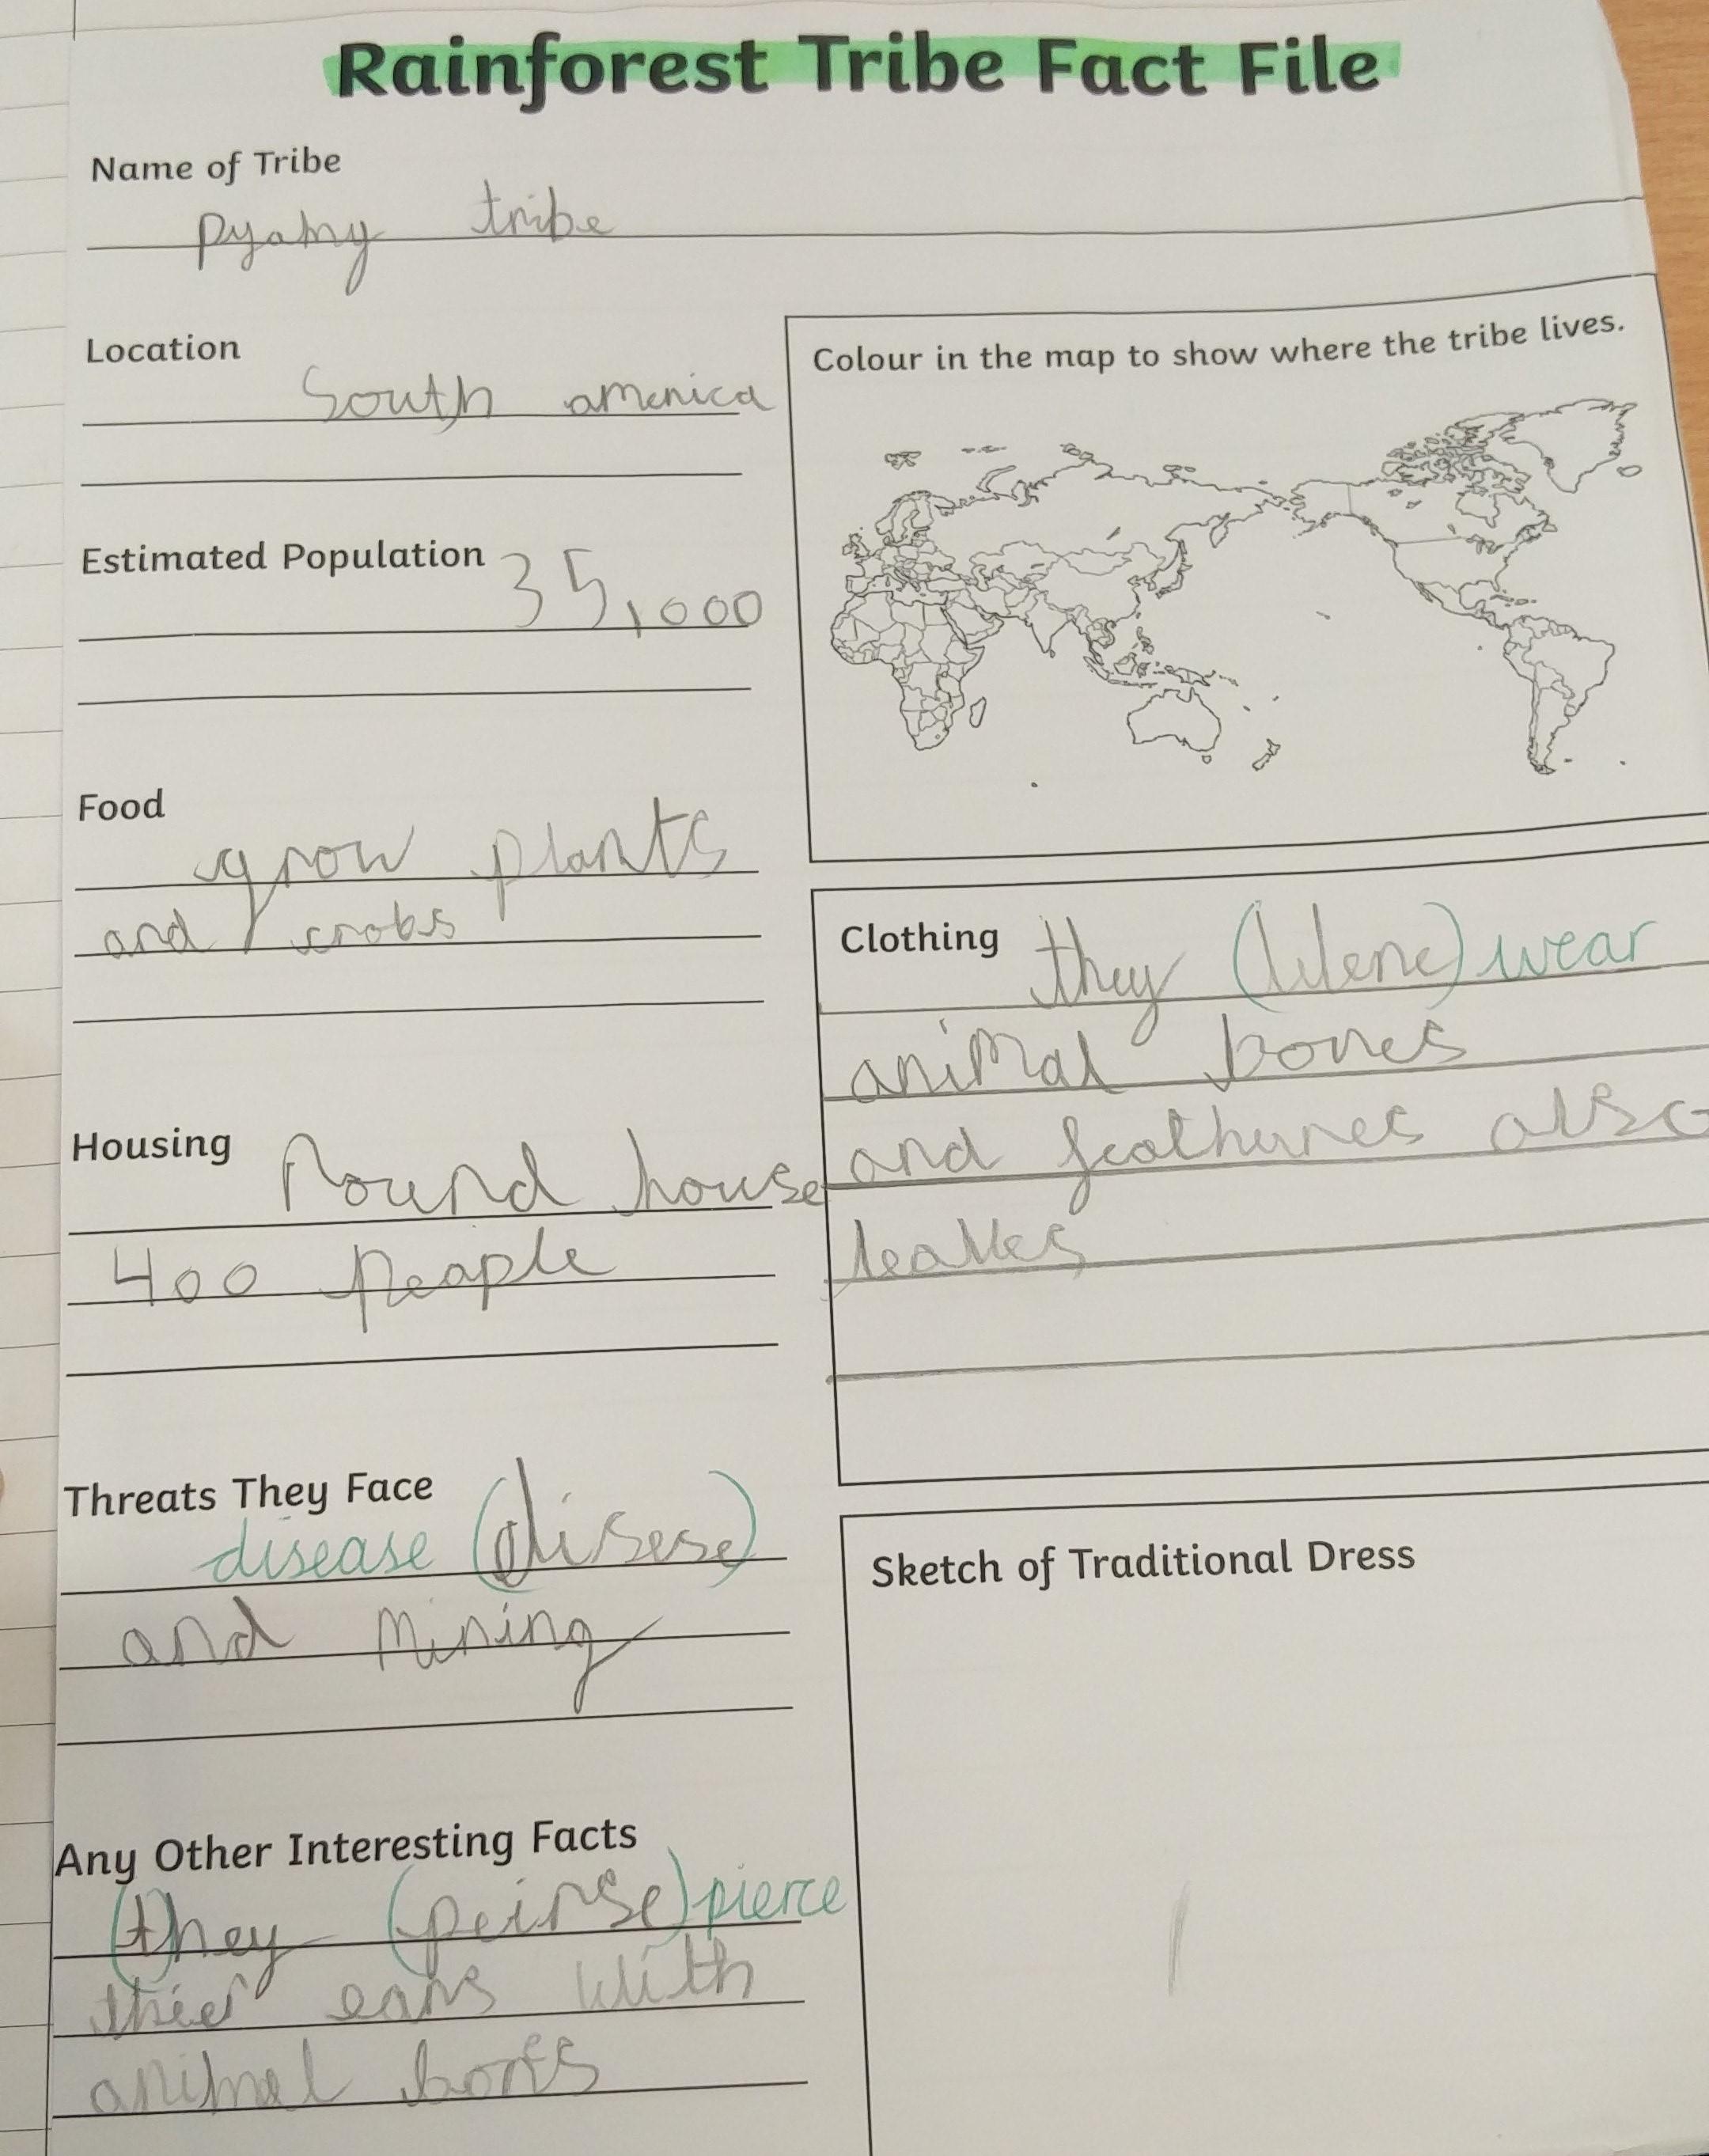 Rainforest Tribe Fact File
Name of Tribe
pyamy tribe
Location
South america
Estimated Population 35,000
Food
grow plants
and crobs
Housing Round house
400 people
Threats They Face
disease (disese)
and Mining
Any Other Interesting Facts
(t)hey (peirse) pierce
thier ears with
animal bons
Colour in the map to show where the tribe lives.
Clothing they (were) wear
animal bones
and feathures also
leaves
Sketch of Traditional Dress